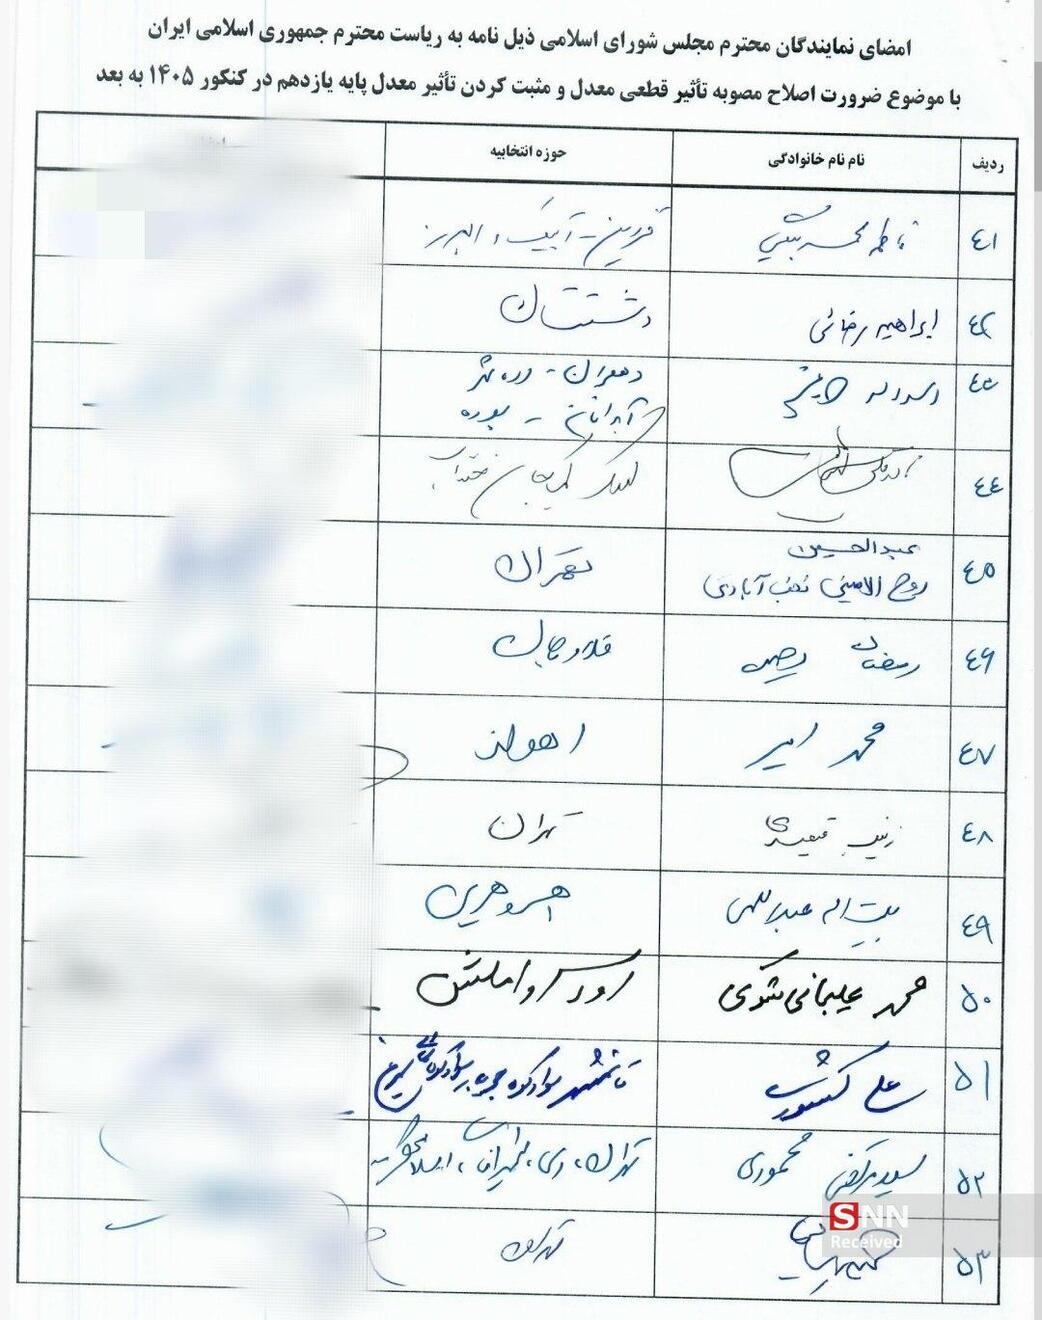 امضای نمایندگان محترم مجلس شورای اسلامی ذیل نامه به ریاست محترم جمهوری اسلامی ایران
با موضوع ضرورت اصلاح مصوبه تأثیر قطعی معدل و مثبت کردن تأثیر معدل پایه یازدهم در کنکور ۱۴۰۵ به بعد
ردیف نام نام خانوادگی حوزه انتخابیه
۴۱ فاطمه محمدبیگی قزوین - آبیک و البرز
۴۲ ابراهیم رضائی دشتستان
۴۳ دهلران - دره شهر
آبدانان - بدره
۴۴ کمیجان خنداب
۴۵ عبدالحسین تهران
روح الامینی نجف آبادی
۴۶ رمضان فلاورجان
۴۷ محمد امیر اهواز
۴۸ زینب قیصری تهران
۴۹ بیت اله عبداللهی اهر و هریس
۵۰ محمد علیجانی شکوی رودسر و املش
۵۱ علی کشوری قائمشهر سوادکوه جویبار سوادکوه شمالی سیمرغ
۵۲ سید مرتضی محمودی تهران، ری، شمیرانات، اسلامشهر
۵۳ تهران
SNN
Received